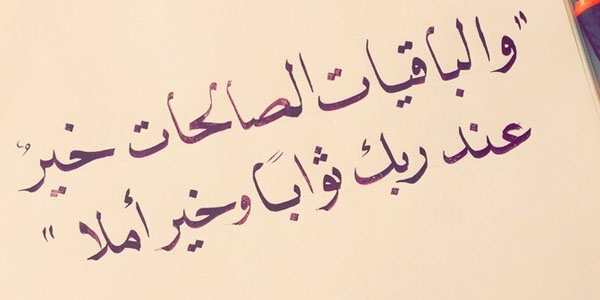 "والباقيات الصالحات خيرٌ
عند ربك ثوابًا وخير أملا"